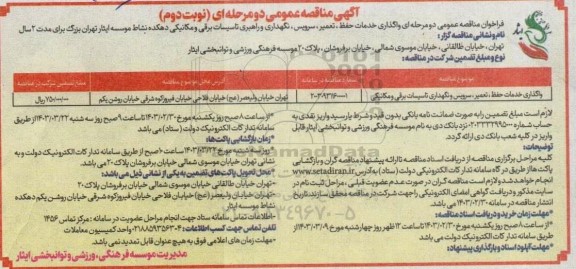 آگهی مناقصه عمومی دو مرحله ای (نوبت دوم)
فراخوان مناقصه عمومی دو مرحله ای واگذاری خدمات حفظ، تعمیر، سرویس، نگهداری و راهبری تاسیسات برقی و مکانیکی دهکده نشاط موسسه ایثار تهران بزرگ برای مدت ۲ سال
نام و نشانی مناقصه گزار:
تهران، خیابان طالقانی، خیابان موسوی شمالی، خیابان برفروشان، پلاک ۲۰ موسسه فرهنگی ورزشی و توانبخشی ایثار
نوع و مبلغ تضمین شرکت در مناقصه:
موضوع مناقصه
شماره مناقصه در سامانه
آدرس محل موضوع مناقصه
مبلغ تضمین شرکت در مناقصه
واگذاری خدمات حفظ، تعمیر، سرویس و نگهداری تاسیسات برقی و مکانیکی
تهران خیابان ولیعصر (عج) خیابان فلاحی خیابان فیروزکوه شرقی خیابان روشن یکم
لازم است مبلغ تضمین را به صورت ضمانت نامه بانکی بدون قید و شرط یا رسید واریز نقدی به
نزد بانک دی به نام موسسه فرهنگی ورزشی و توانبخشی ایثار قابل
واریز در کلیه شعب بانک دی ارائه گردد
توضیحات:
کلیه مراحل برگزاری مناقصه از دریافت اسناد مناقصه تا ارائه پیشنهاد مناقصه گران و بازگشایی
پاکت ها از طریق درگاه سامانه تدارکات الکترونیکی دولت (ستاد) به آدرس www.setadiran.ir
انجام خواهد شد و لازم است مناقصه گران در صورت عدم عضویت قبلی، مراحل ثبت نام در
سایت مذکور و دریافت گواهی امضای الکترونیکی را جهت شرکت در مناقصه محقق سازند تاریخ
انتشار مناقصه در سامانه ۱۴۰۳/۰۲/۳۰ می باشد.
مهلت زمان خرید و دریافت اسناد مناقصه:
از ساعت ۸ صبح روز یکشنبه مورخ ۱۴۰۳/۰۲/۳۰ تا ساعت ۱۲ ظهر روز چهارشنبه مورخ ۱۴۰۳/۰۳/۰۹ از
طریق سامانه تدارکات الکترونیک دولت (ستاد)
مهلت آپلود اسناد و بارگذاری پیشنهاد:
از ساعت ۸ صبح روز یکشنبه مورخ ۱۴۰۳/۰۲/۳۰ تا ساعت ۹ صبح روز سه شنبه ۱۴۰۳/۰۳/۲۲ از طریق
سامانه تدارکات الکترونیک دولت (ستاد) می باشد
زمان بازگشایی پاکت ها:
ساعت ۱۰ صبح از طریق سامانه تدارکات الکترونیک دولت و به
نشانی تهران خیابان موسوی شمالی خیابان برفروشان پلاک ۲۰
محل تحویل پاکت های تضمین به یکی از نشانی ذیل می باشد:
-تهران خیابان طالقانی خیابان موسوی شمالی خیابان برفروشان پلاک ۲۰
-تهران خیابان ولیعصر (عج) خیابان فلاحی خیابان فیروزکوه شرقی خیابان روشن یکم دهکده
نشاط موسسه ایثار
-اطلاعات تماس سامانه ستاد جهت انجام مراحل عضویت در سامانه: مرکز تماس ۱۴۵۶
تلفن تماس جهت کسب اطلاعات: ۰۲۱۸۸۵۹۳۵۶۳-۴ واحد کمیسیون معاملات
-مهلت زمان های اعلامی فوق به هیچ عنوان قابل تمدید نمی باشد.
مدیریت موسسه فرهنگی، ورزشی و توانبخشی ایثار